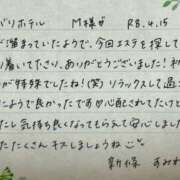 バリホテル M様♂ R8.4.15
が溜まっていたようで、今回エステを探して
り着いて下さり、ありがとうございました!
が特殊でしたね(笑) リラックスして過ご
ようで良かったです♡心配されてたけど
たし気持ち良くなってもらえて安心しました
たたくさんキスしましょうね♡
新條 すみれ